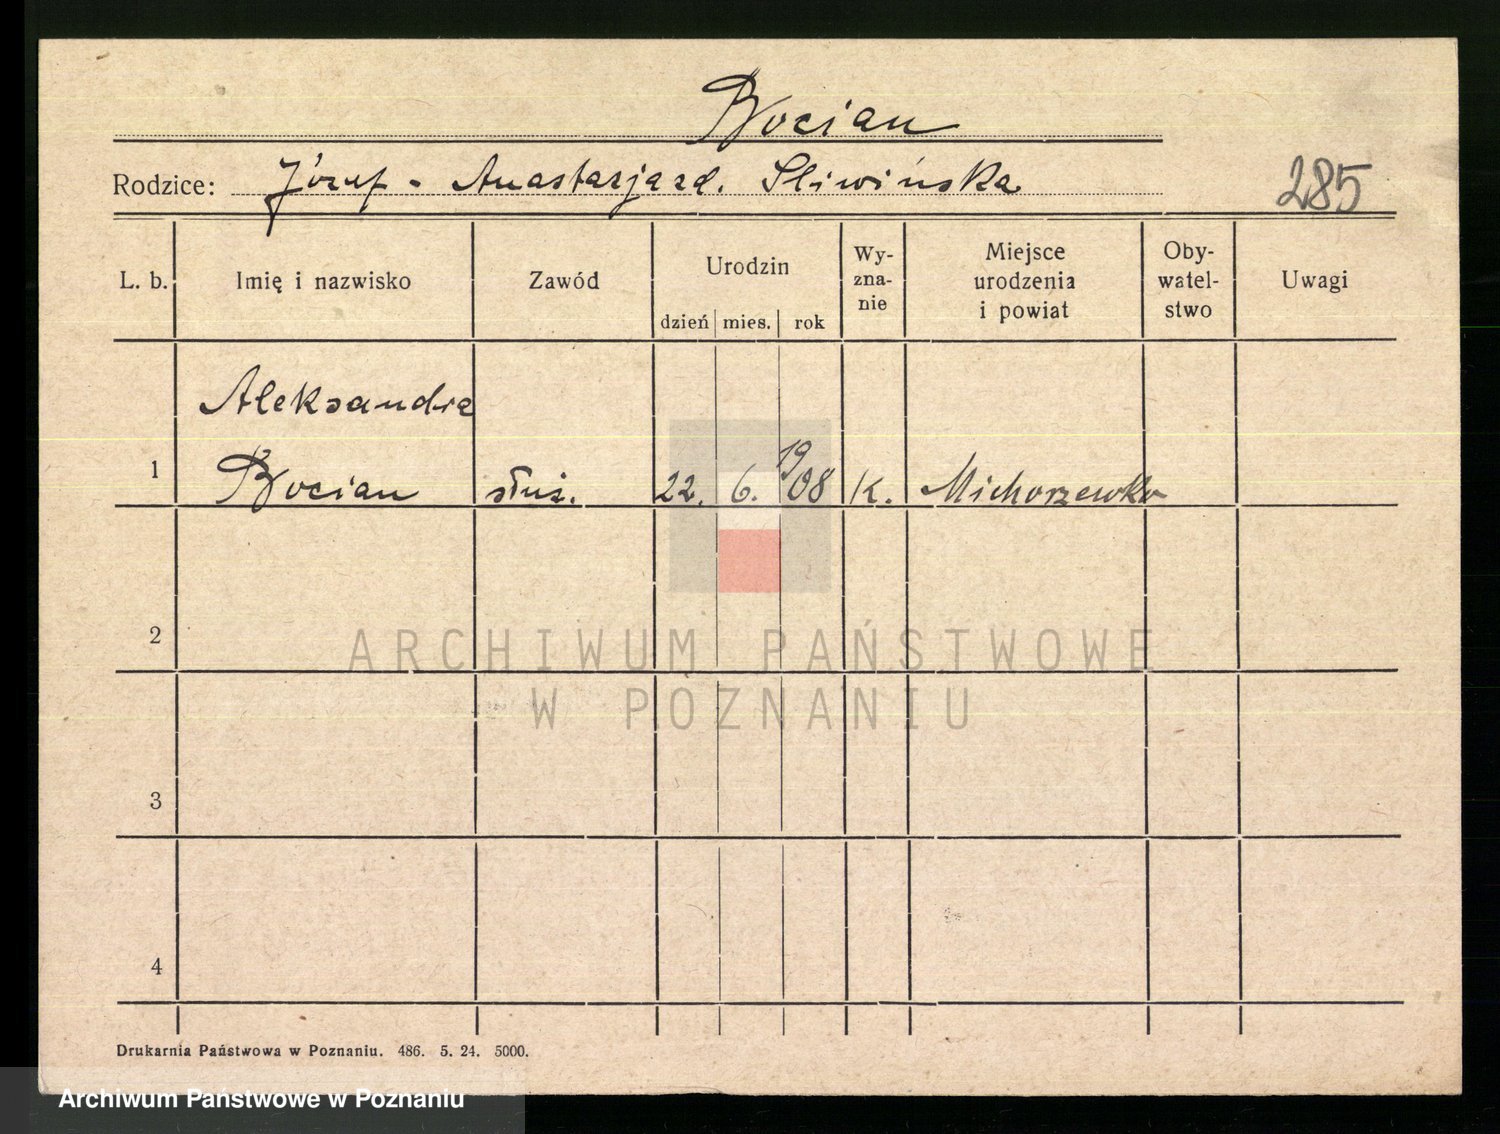 Bocian
Rodzice: Józef - Anastazja zd. Śliwińska
285
L. b. Imię i nazwisko Zawód Urodzin dzień mies. rok Wy-zna-nie Miejsce urodzenia i powiat Oby-watel-stwo Uwagi
Aleksandra
1 Bocian służ. 22. 6. 1908 K. Michorzewko
2
3
4
ARCHIWUM PAŃSTWOWE
W POZNANIU
Drukarnia Państwowa w Poznaniu. 486. 5. 24. 5000.
Archiwum Państwowe w Poznaniu